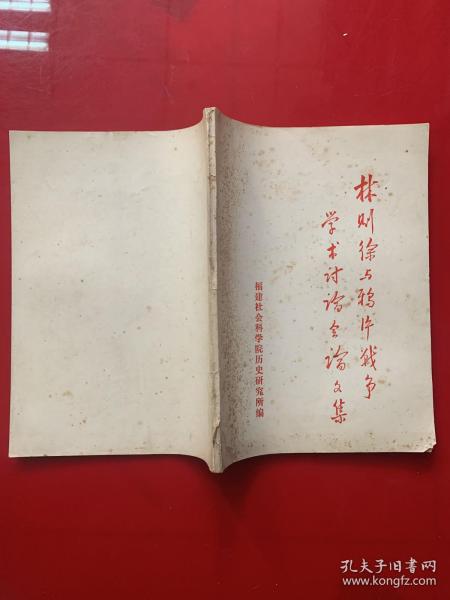 林则徐与鸦片战争
学术讨论会论文集
福建社会科学院历史研究所编
孔夫子旧书网
www.kongfz.com